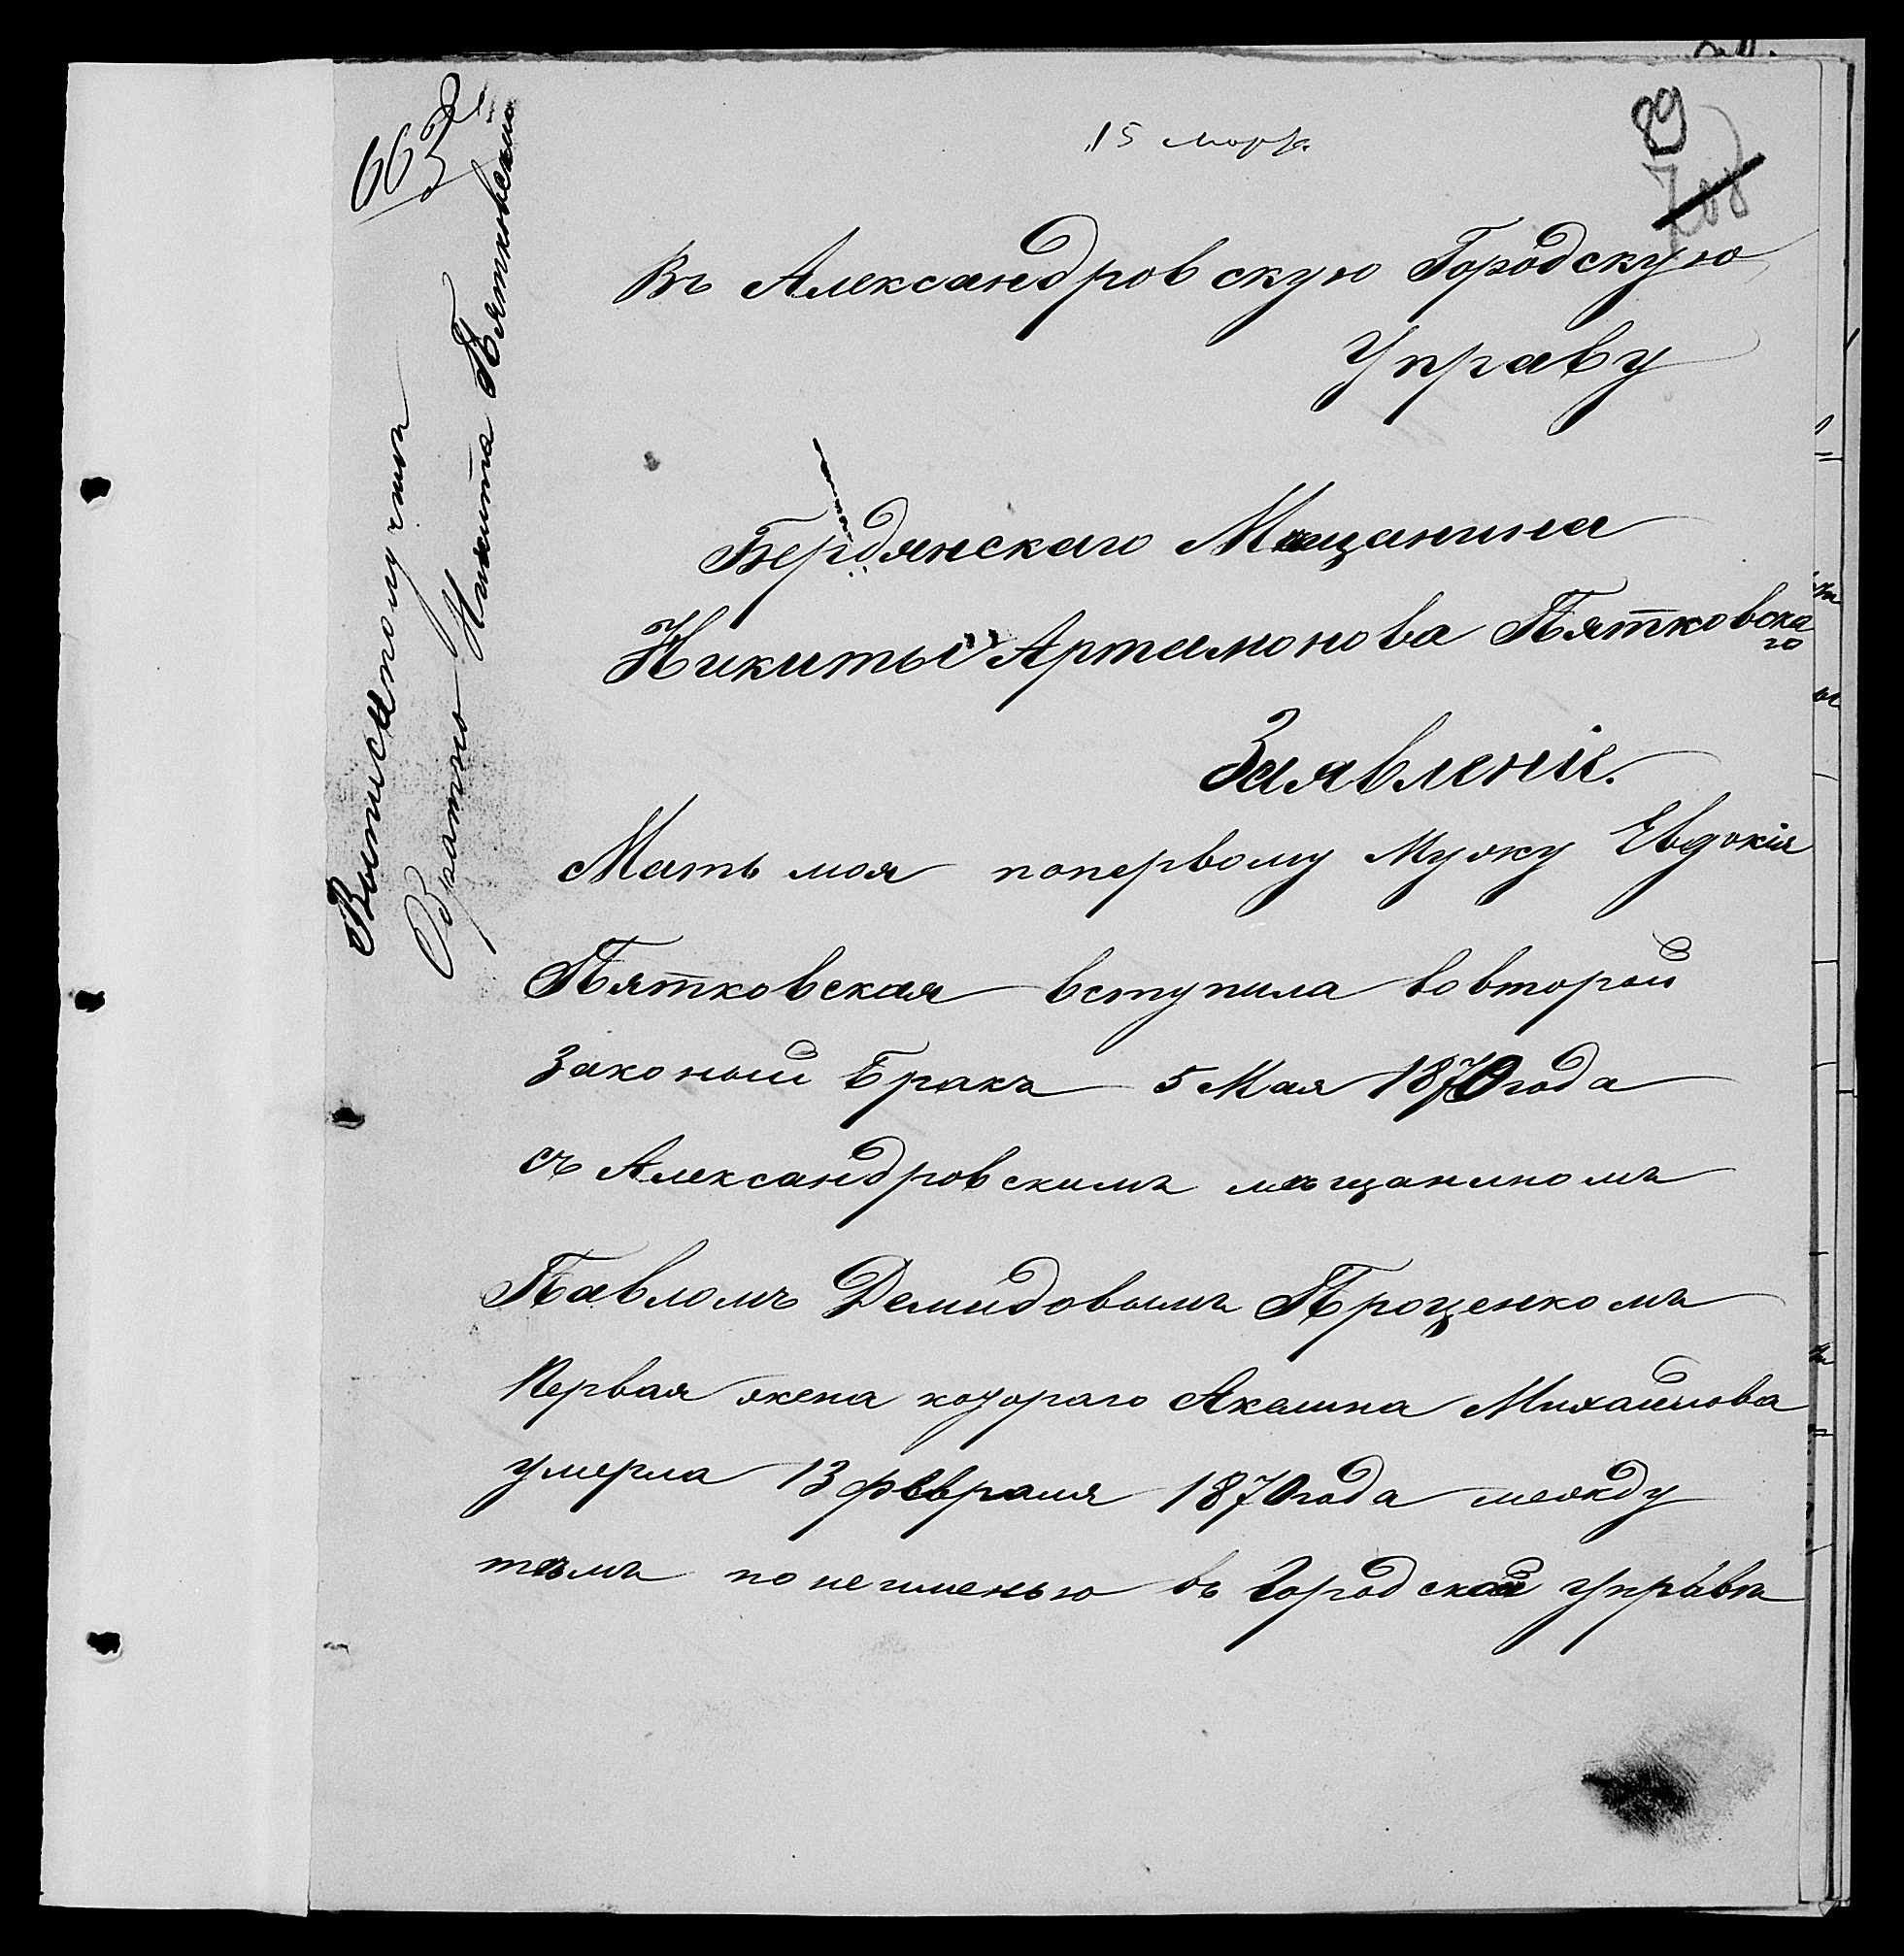 89
708
15 март.
663
Въ Александровскую Городскую
Управу
Бердянскаго Мѣщанина
Никиты Артамонова Пятковска
го
Заявленіе.
Мать моя попервому Мужу Евдокія
Пятковская вступила вовторой
Законый Бракъ 5 Мая 1870 года
съ Александровскимъ мѣщаниномъ
Павломъ Демидовымъ Проценкомъ
Первая жена котораго Акелина Михайлова
умерла 13 февраля 1870 года между
тѣмъ по неименью въ Городской Управѣ
Никита Пятковскій